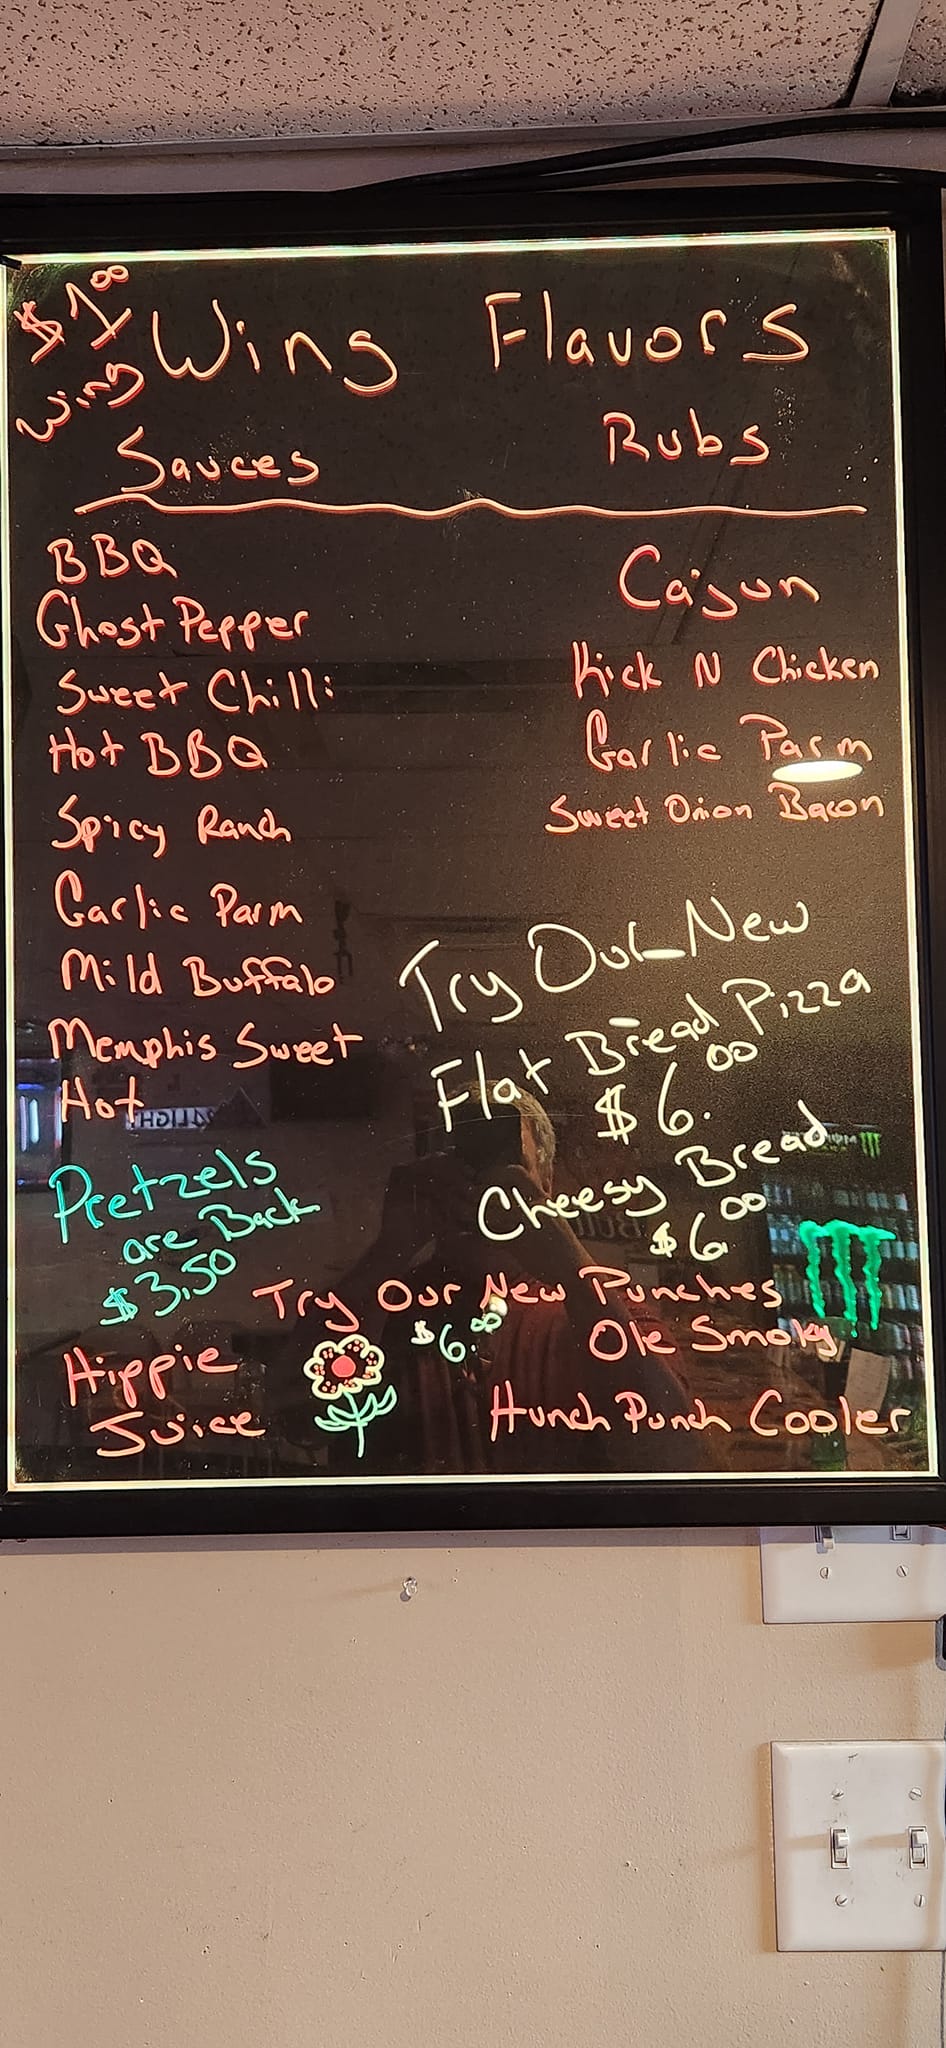 $1.00
Wing
Wing Flavors
Sauces
BBQ
Ghost Pepper
Sweet Chilli
Hot BBQ
Spicy Ranch
Garlic Parm
Mild Buffalo
Memphis Sweet
Hot
Rubs
Cajun
Kick N Chicken
Garlic Parm
Sweet Onion Bacon
Try Our New
Flat Bread Pizza
$6.00
Cheesy Bread
$6.00
Pretzels
are Back
$3.50
Try Our New Punches
$6.00
Hippie
Juice
Ole Smoky
Hunch Punch Cooler